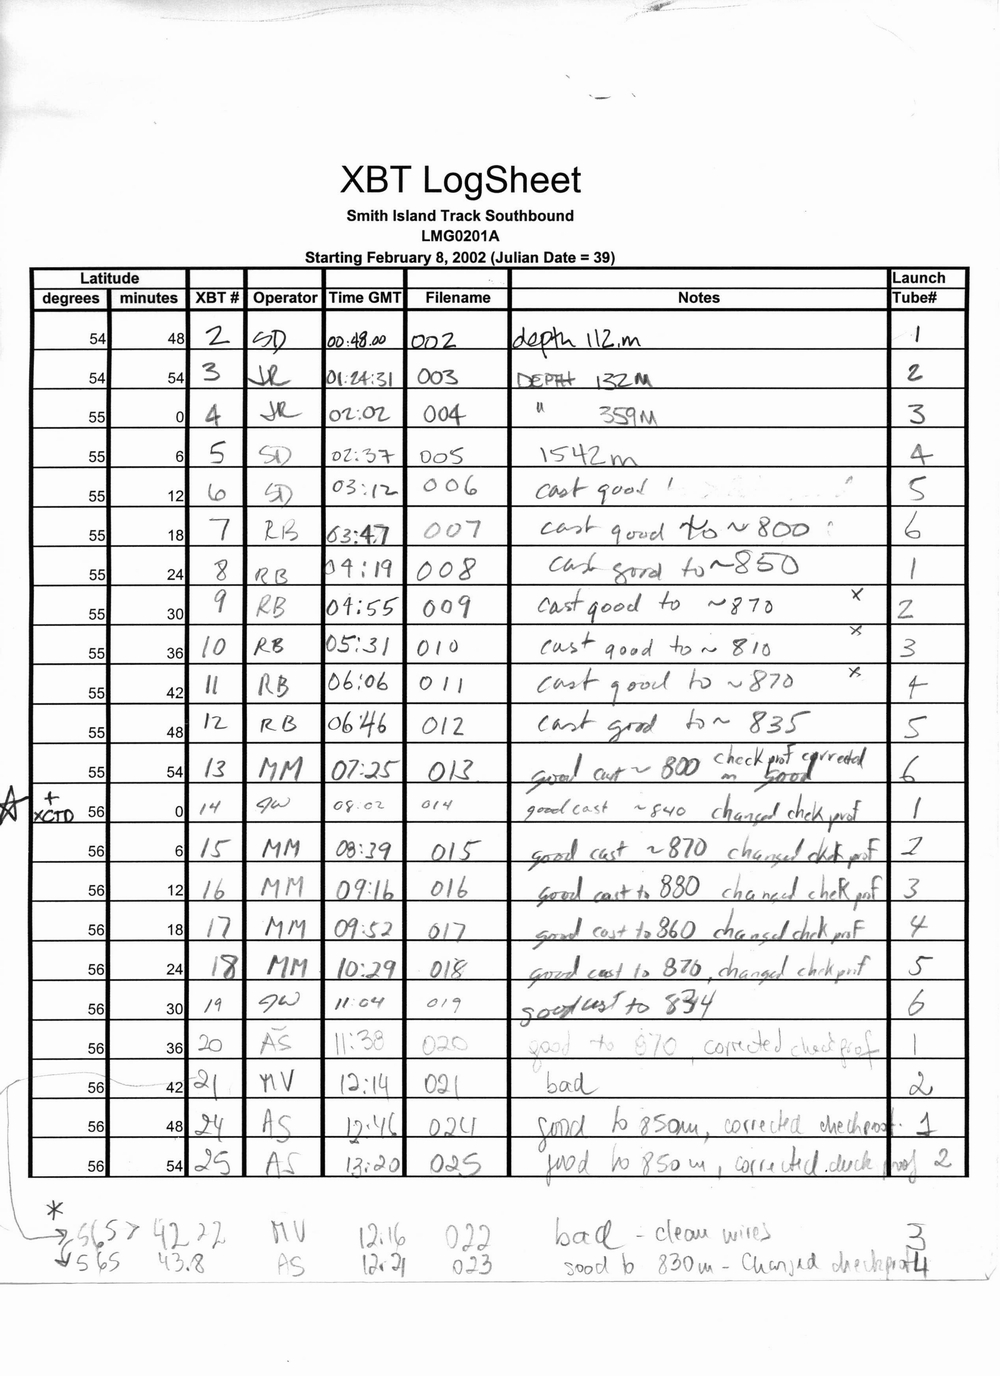 XBT LogSheet
Smith Island Track Southbound
LMG0201A
Starting February 8, 2002 (Julian Date = 39)
Latitude Launch
degrees minutes XBT # Operator Time GMT Filename Notes Tube#
54 48 2 SD 00:48.00 002 depth 112.m 1
54 54 3 JR 01:24:31 003 DEPTH 132M 2
55 0 4 JR 02:02 004 " 359M 3
55 6 5 SD 02:37 005 1542m 4
55 12 6 SD 03:12 006 cast good ! 5
55 18 7 RB 03:47 007 cast good to ~800 6
55 24 8 RB 04:19 008 cast good to ~850 1
55 30 9 RB 04:55 009 cast good to ~870 x 2
55 36 10 RB 05:31 010 cast good to ~ 810 x 3
55 42 11 RB 06:06 011 cast good to ~870 x 4
55 48 12 RB 06:46 012 cast good to ~ 835 5
55 54 13 MM 07:25 013 good cast ~ 800 check prof corrected good 6
☆ + XCTD 56 0 14 JW 08:02 014 good cast ~840 changed chek prof 1
56 6 15 MM 08:39 015 good cast ~870 changed chek prof 2
56 12 16 MM 09:16 016 good cast to 880 changed chek prof 3
56 18 17 MM 09:52 017 good cast to 860 changed chek prof 4
56 24 18 MM 10:29 018 good cast to 870, changed chek prof 5
56 30 19 JW 11:04 019 good cast to 834 6
56 36 20 AŠ 11:38 020 good to 870, corrected checkprof 1
56 42 21 MV 12:14 021 bad 2
56 48 24 AS 12:46 024 good to 850m, corrected checkprof. 1
56 54 25 AS 13:20 025 good to 850m, corrected check prof 2
*
→ 565 > 42.22 MV 12:16 022 bad - clean wires 3
↓ 565 43.8 AS 12:21 023 good to 830m - Changed checkprof 4